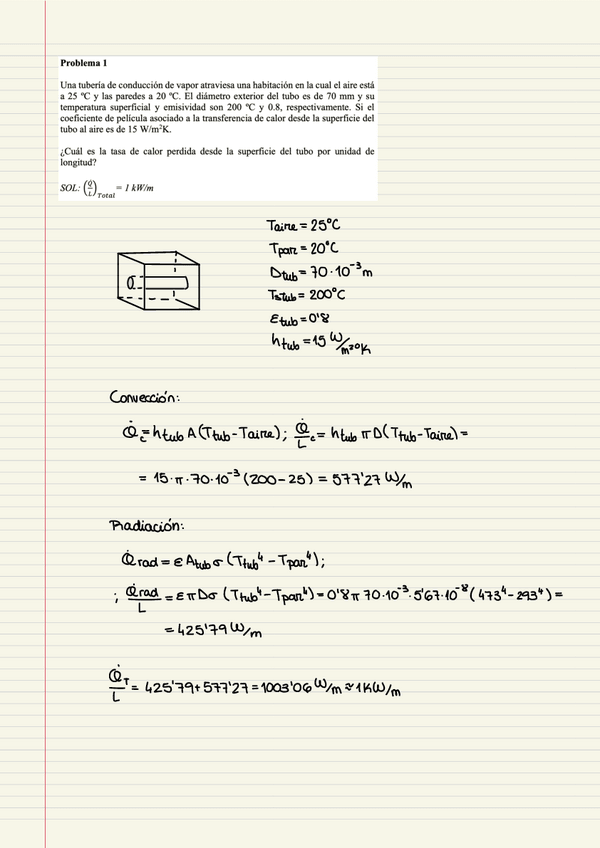 Problema 1
Una tubería de conducción de vapor atraviesa una habitación en la cual el aire está
a 25 ºC y las paredes a 20 ºC. El diámetro exterior del tubo es de 70 mm y su
temperatura superficial y emisividad son 200 ºC y 0.8, respectivamente. Si el
coeficiente de película asociado a la transferencia de calor desde la superficie del
tubo al aire es de 15 W/m²K.
¿Cuál es la tasa de calor perdida desde la superficie del tubo por unidad de
longitud?
SOL: (Q̇/L)Total = 1 kW/m
Taire = 25ºC
Tpar = 20ºC
Dtub = 70·10⁻³ m
Tstub = 200ºC
εtub = 0'8
htub = 15 W/m²ºK
Convección:
Q̇c = htub A (Ttub - Taire); Q̇/L c = htub π D (Ttub - Taire) =
= 15·π·70·10⁻³ (200 - 25) = 577'27 W/m
Radiación:
Q̇rad = ε Atub σ (Ttub⁴ - Tpar⁴);
; Q̇rad/L = ε π D σ (Ttub⁴ - Tpar⁴) = 0'8 π 70·10⁻³·5'67·10⁻⁸ (473⁴ - 293⁴) =
= 425'79 W/m
Q̇T/L = 425'79 + 577'27 = 1003'06 W/m ≈ 1 KW/m